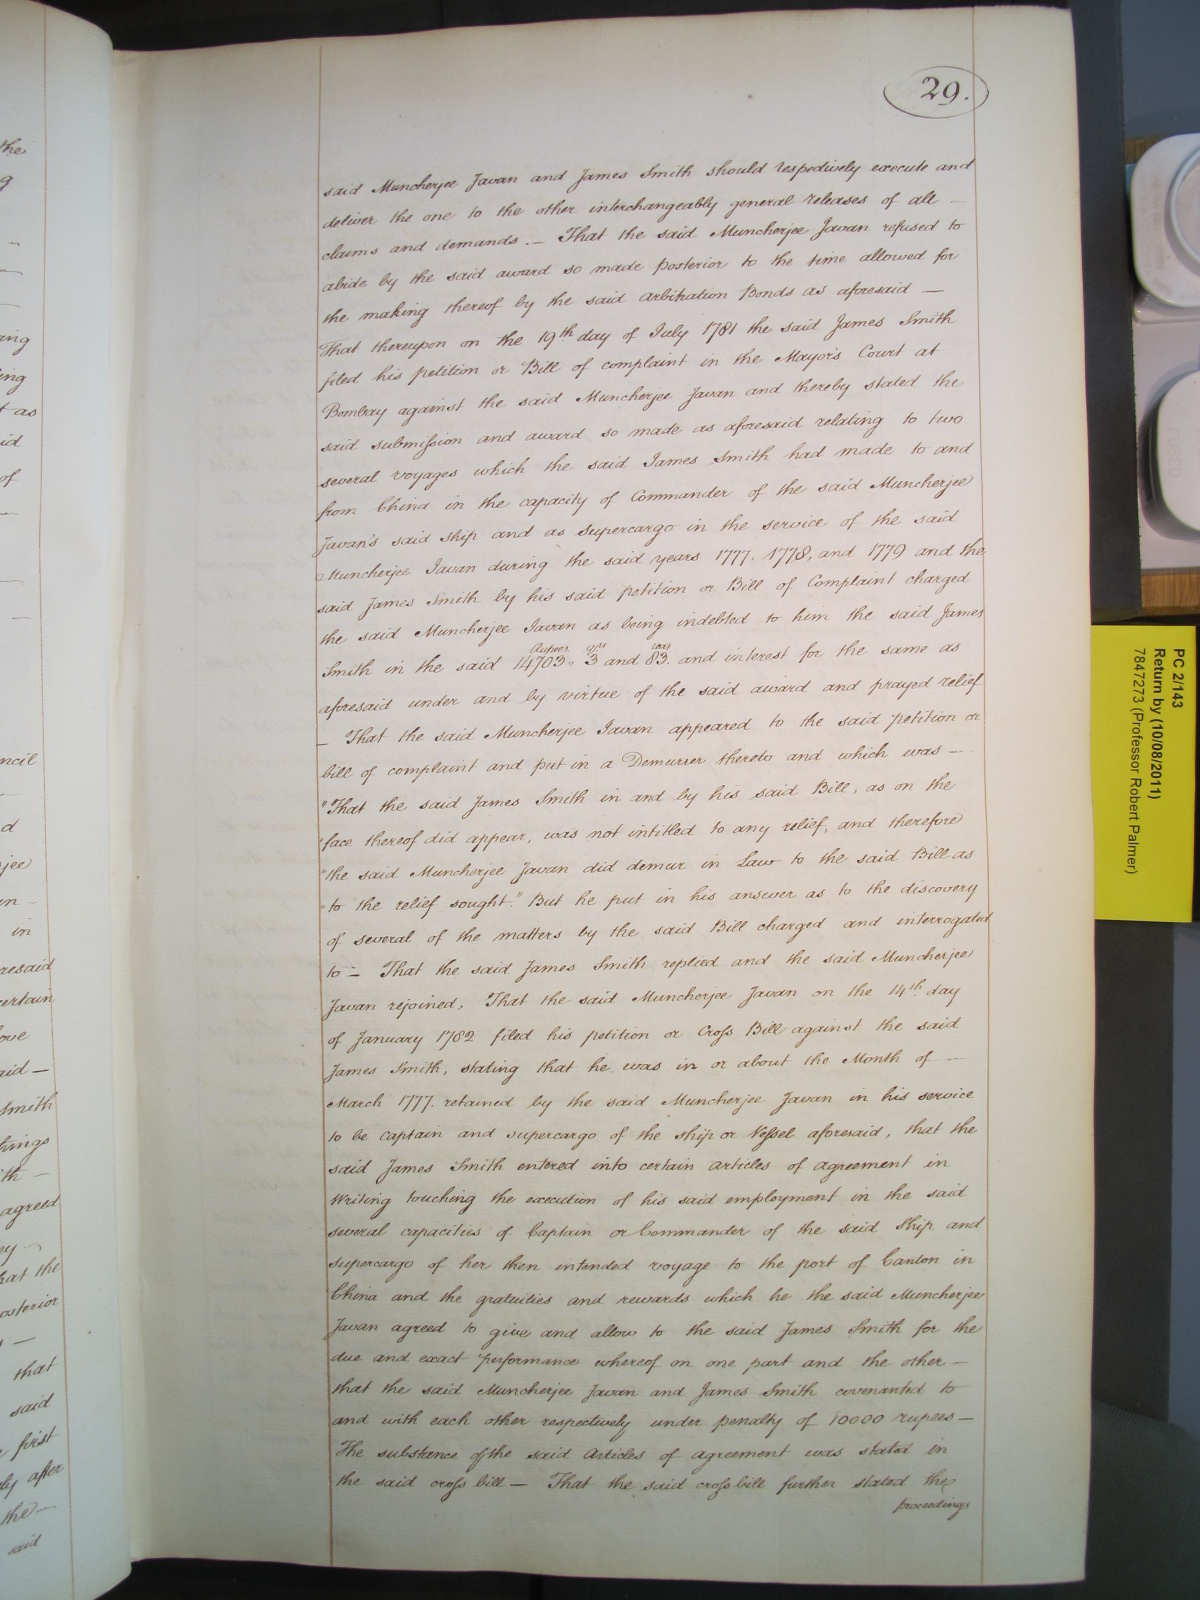 29.
said Muncherjee Javan and James Smith should respectively execute and
deliver the one to the other interchangeably general releases of all —
claims and demands. — That the said Muncherjee Javan refused to
abide by the said award so made posterior to the time allowed for
the making thereof by the said arbitration Bonds as aforesaid —
That thereupon on the 19th day of July 1781 the said James Smith
filed his petition or Bill of complaint in the Mayor's Court at
Bombay against the said Muncherjee Javan and thereby stated the
said submission and award so made as aforesaid relating to two
several voyages which the said James Smith had made to and
from China in the capacity of Commander of the said Muncherjee
Javan's said ship and as supercargo in the service of the said
Muncherjee Javan during the said years 1777. 1778, and 1779 and the
said James Smith by his said petition or Bill of Complaint charged
the said Muncherjee Javan as being indebted to him the said James
Smith in the said 14703 Rupees 3 qrs and 83 reas and interest for the same as
aforesaid under and by virtue of the said award and prayed relief
— That the said Muncherjee Javan appeared to the said petition or
bill of complaint and put in a Demurrer thereto and which was —
"That the said James Smith in and by his said Bill, as on the
"face thereof did appear, was not intitled to any relief, and therefore
"the said Muncherjee Javan did demur in Law to the said Bill as
"to the relief sought." But he put in his answer as to the discovery
of several of the matters by the said Bill charged and interrogated
to — That the said James Smith replied and the said Muncherjee
Javan rejoined. That the said Muncherjee Javan on the 14th day
of January 1782 filed his petition or Cross Bill against the said
James Smith, stating that he was in or about the Month of —
March 1777. retained by the said Muncherjee Javan in his service
to be captain and supercargo of the ship or Vessel aforesaid, that the
said James Smith entered into certain articles of agreement in
Writing touching the execution of his said employment in the said
several capacities of Captain or Commander of the said Ship and
supercargo of her then intended voyage to the port of Canton in
China and the gratuities and rewards which he the said Muncherjee
Javan agreed to give and allow to the said James Smith for the
due and exact performance whereof on one part and the other —
that the said Muncherjee Javan and James Smith covenanted to
and with each other respectively under penalty of 10000 rupees —
The substance of the said Articles of agreement was stated in
the said cross bill — That the said cross bill further stated the
proceedings
PC 2/143
Return by (10/08/2011)
7847273 (Professor Robert Palmer)